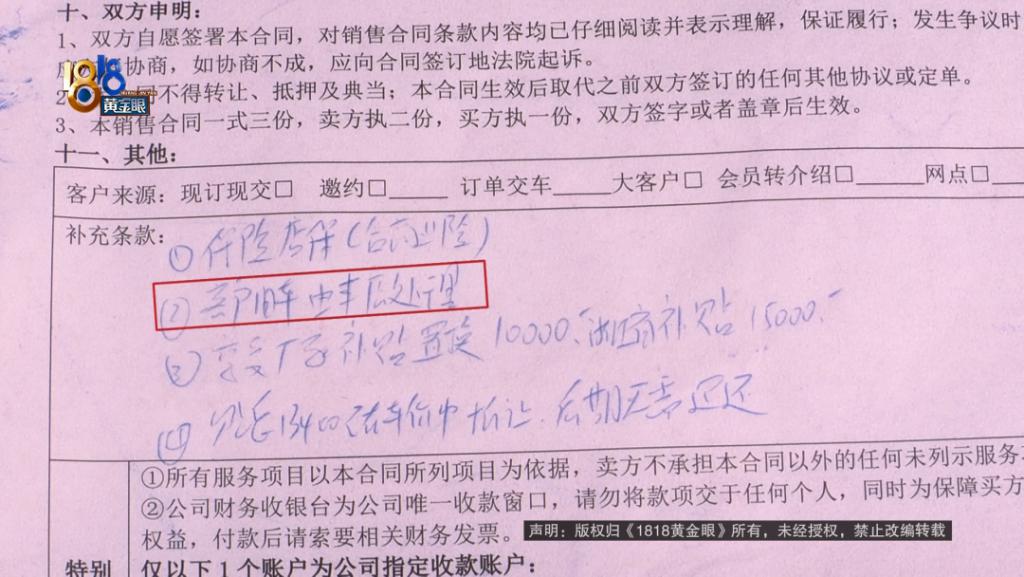 十、双方申明：
1、双方自愿签署本合同，对销售合同条款内容均已仔细阅读并表示理解，保证履行；发生争议时
协商，如协商不成，应向合同签订地法院起诉。
2、 不得转让、抵押及典当；本合同生效后取代之前双方签订的任何其他协议或定单。
3、本销售合同一式三份，卖方执二份，买方执一份，双方签字或者盖章后生效。
1818黄金眼
十一、其他：
客户来源：现订现交□ 邀约□_____ 订单交车_____大客户□ 会员转介绍□______网点□
补充条款：
① 保险店保(含商业险)
② 旧车由车店处理
③ 享受厂家补贴置换10000. 补贴15000.
④ 13400在车价中折让.后期无需返还
①所有服务项目以本合同所列项目为依据，卖方不承担本合同以外的任何未列示服务
②公司财务收银台为公司唯一收款窗口，请勿将款项交于任何个人，同时为保障买方
权益，付款后请索要相关财务发票。
声明：版权归《1818黄金眼》所有，未经授权，禁止改编转载
特别
仅以下1个账户为公司指定收款账户：